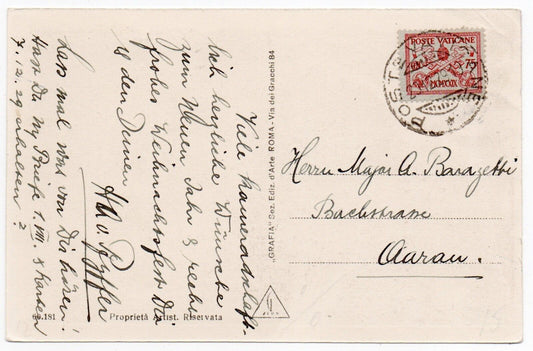 Viele kameradschaft-
lich herzliche Wünsche
zum Neuen Jahr & recht
frohes Weihnachtsfest Dir
& den Deinen!
Pfyffer
Lass mal was von Dir hören!
Hast Du my Briefe 1. VIII. & Karten
7.12.29 erhalten?
66.181
Proprietà Artist. Riservata
„GRAFIA" Sez. Ediz. d'Arte ROMA - Via dei Gracchi 84
POSTE VATICANE
75
MCMXXIX
POSTE
Herrn Major A. Barazetti
Bachstrasse
Aarau.